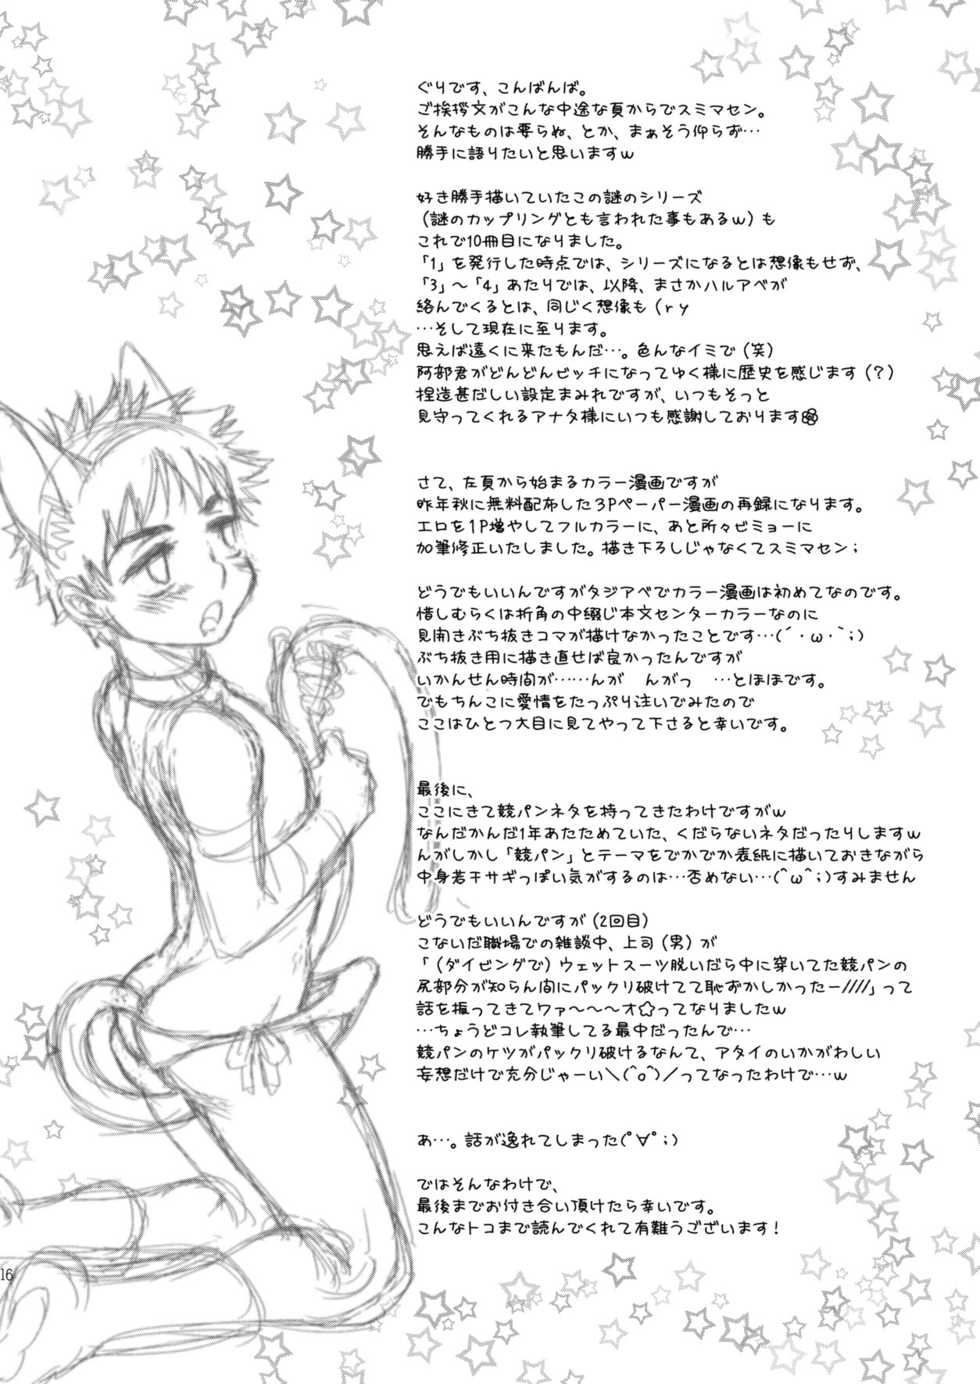 ぐりです、こんばんば。
ご挨拶文がこんな中途な頁からでスミマセン。
そんなものは要らぬ、とか、まぁそう仰らず…
勝手に語りたいと思いますw
好き勝手描いていたこの謎のシリーズ
（謎のカップリングとも言われた事もあるw）も
これで10冊目になりました。
「1」を発行した時点では、シリーズになるとは想像もせず、
「3」～「4」あたりでは、以降、まさかハルアベが
絡んでくるとは、同じく想像も（ｒｙ
…そして現在に至ります。
思えば遠くに来たもんだ…。色んなイミで（笑）
阿部君がどんどんビッチになってゆく様に歴史を感じます（？）
捏造甚だしい設定まみれですが、いつもそっと
見守ってくれるアナタ様にいつも感謝しております
さて、左頁から始まるカラー漫画ですが
昨年秋に無料配布した3Pペーパー漫画の再録になります。
エロを1P増やしてフルカラーに、あと所々ビミョーに
加筆修正いたしました。描き下ろしじゃなくてスミマセン；
どうでもいいんですがタジアベでカラー漫画は初めてなのです。
惜しむらくは折角の中綴じ本文センターカラーなのに
見開きぶち抜きコマが描けなかったことです…(´・ω・｀；)
ぶち抜き用に描き直せば良かったんですが
いかんせん時間が……んが　んがっ　…とほほです。
でもちんこに愛情をたっぷり注いでみたので
ここはひとつ大目に見てやって下さると幸いです。
最後に、
ここにきて競パンネタを持ってきたわけですがw
なんだかんだ1年あたためていた、くだらないネタだったりしますw
んがしかし「競パン」とテーマをでかでか表紙に描いておきながら
中身若干サギっぽい気がするのは…否めない…(^ω^；)すみません
どうでもいいんですが（2回目）
こないだ職場での雑談中、上司（男）が
「（ダイビングで）ウェットスーツ脱いだら中に穿いてた競パンの
尻部分が知らん間にパックリ破けてて恥ずかしかったー////」って
話を振ってきてワァ～～～オ☆ってなりましたw
…ちょうどコレ執筆してる最中だったんで…
競パンのケツがパックリ破けるなんて、アタイのいかがわしい
妄想だけで充分じゃーい＼(^o^)／ってなったわけで…w
あ…。話が逸れてしまった(ﾟ∀ﾟ；)
ではそんなわけで、
最後までお付き合い頂けたら幸いです。
こんなトコまで読んでくれて有難うございます！
16